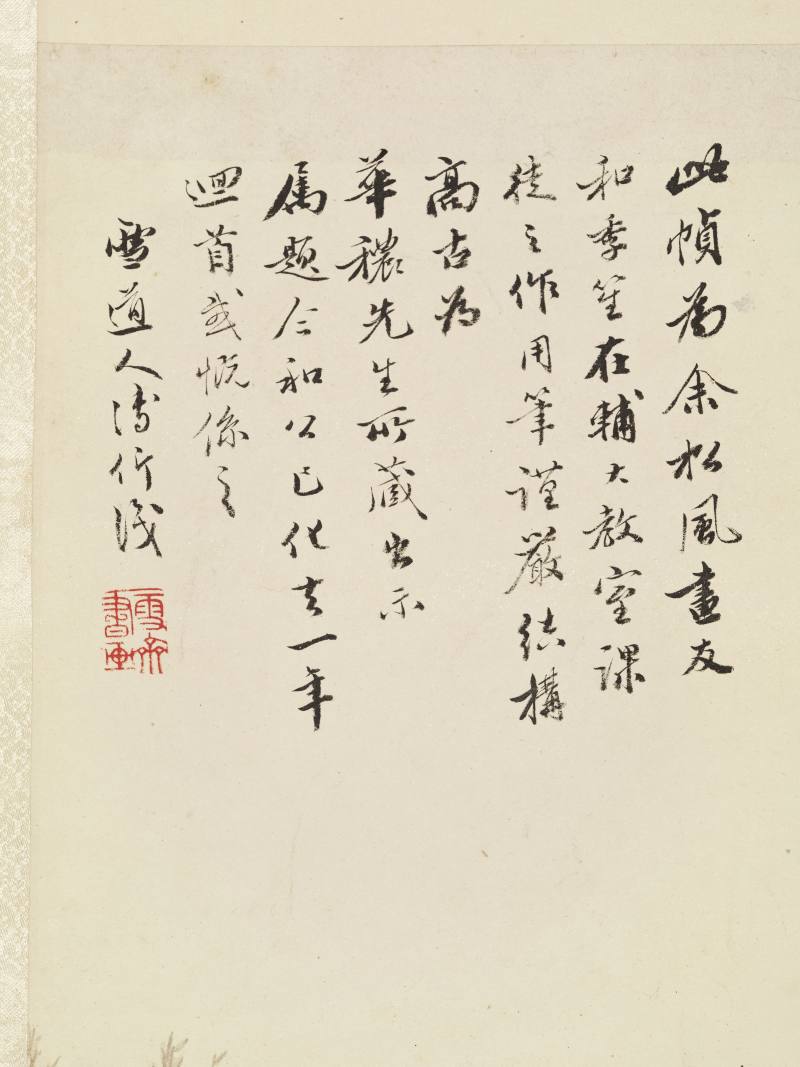 此幀為余松風畫友
和季笙在輔大教室課
徒之作用筆謹嚴結構
高古為
華穠先生所藏出示
属題今和公已化去一年
迴首感慨係之
雪道人溥伒識
雪齋書畫